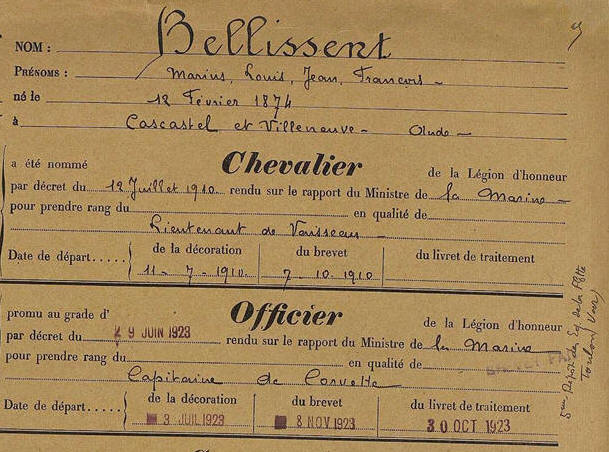 NOM : Bellissent
PRÉNOMS : Marius, Louis, Jean, Francois -
né le 12 Février 1874
à Cascastel et Villeneuve - Aude -
a été nommé Chevalier de la Légion d'honneur
par décret du 12 Juillet 1910 rendu sur le rapport du Ministre de la Marine -
pour prendre rang du en qualité de
Lieutenant de Vaisseau
Date de départ..... de la décoration du brevet du livret de traitement
11 - 7 - 1910. 7 - 10 - 1910
promu au grade d' Officier de la Légion d'honneur
par décret du 29 JUIN 1923 rendu sur le rapport du Ministre de la Marine
pour prendre rang du en qualité de
Capitaine de Corvette
Date de départ..... de la décoration du brevet du livret de traitement
3 JUIL 1923 8 NOV 1923 30 OCT 1923
5eme Dépôt des Eq. de la Flotte
Toulon (Var)